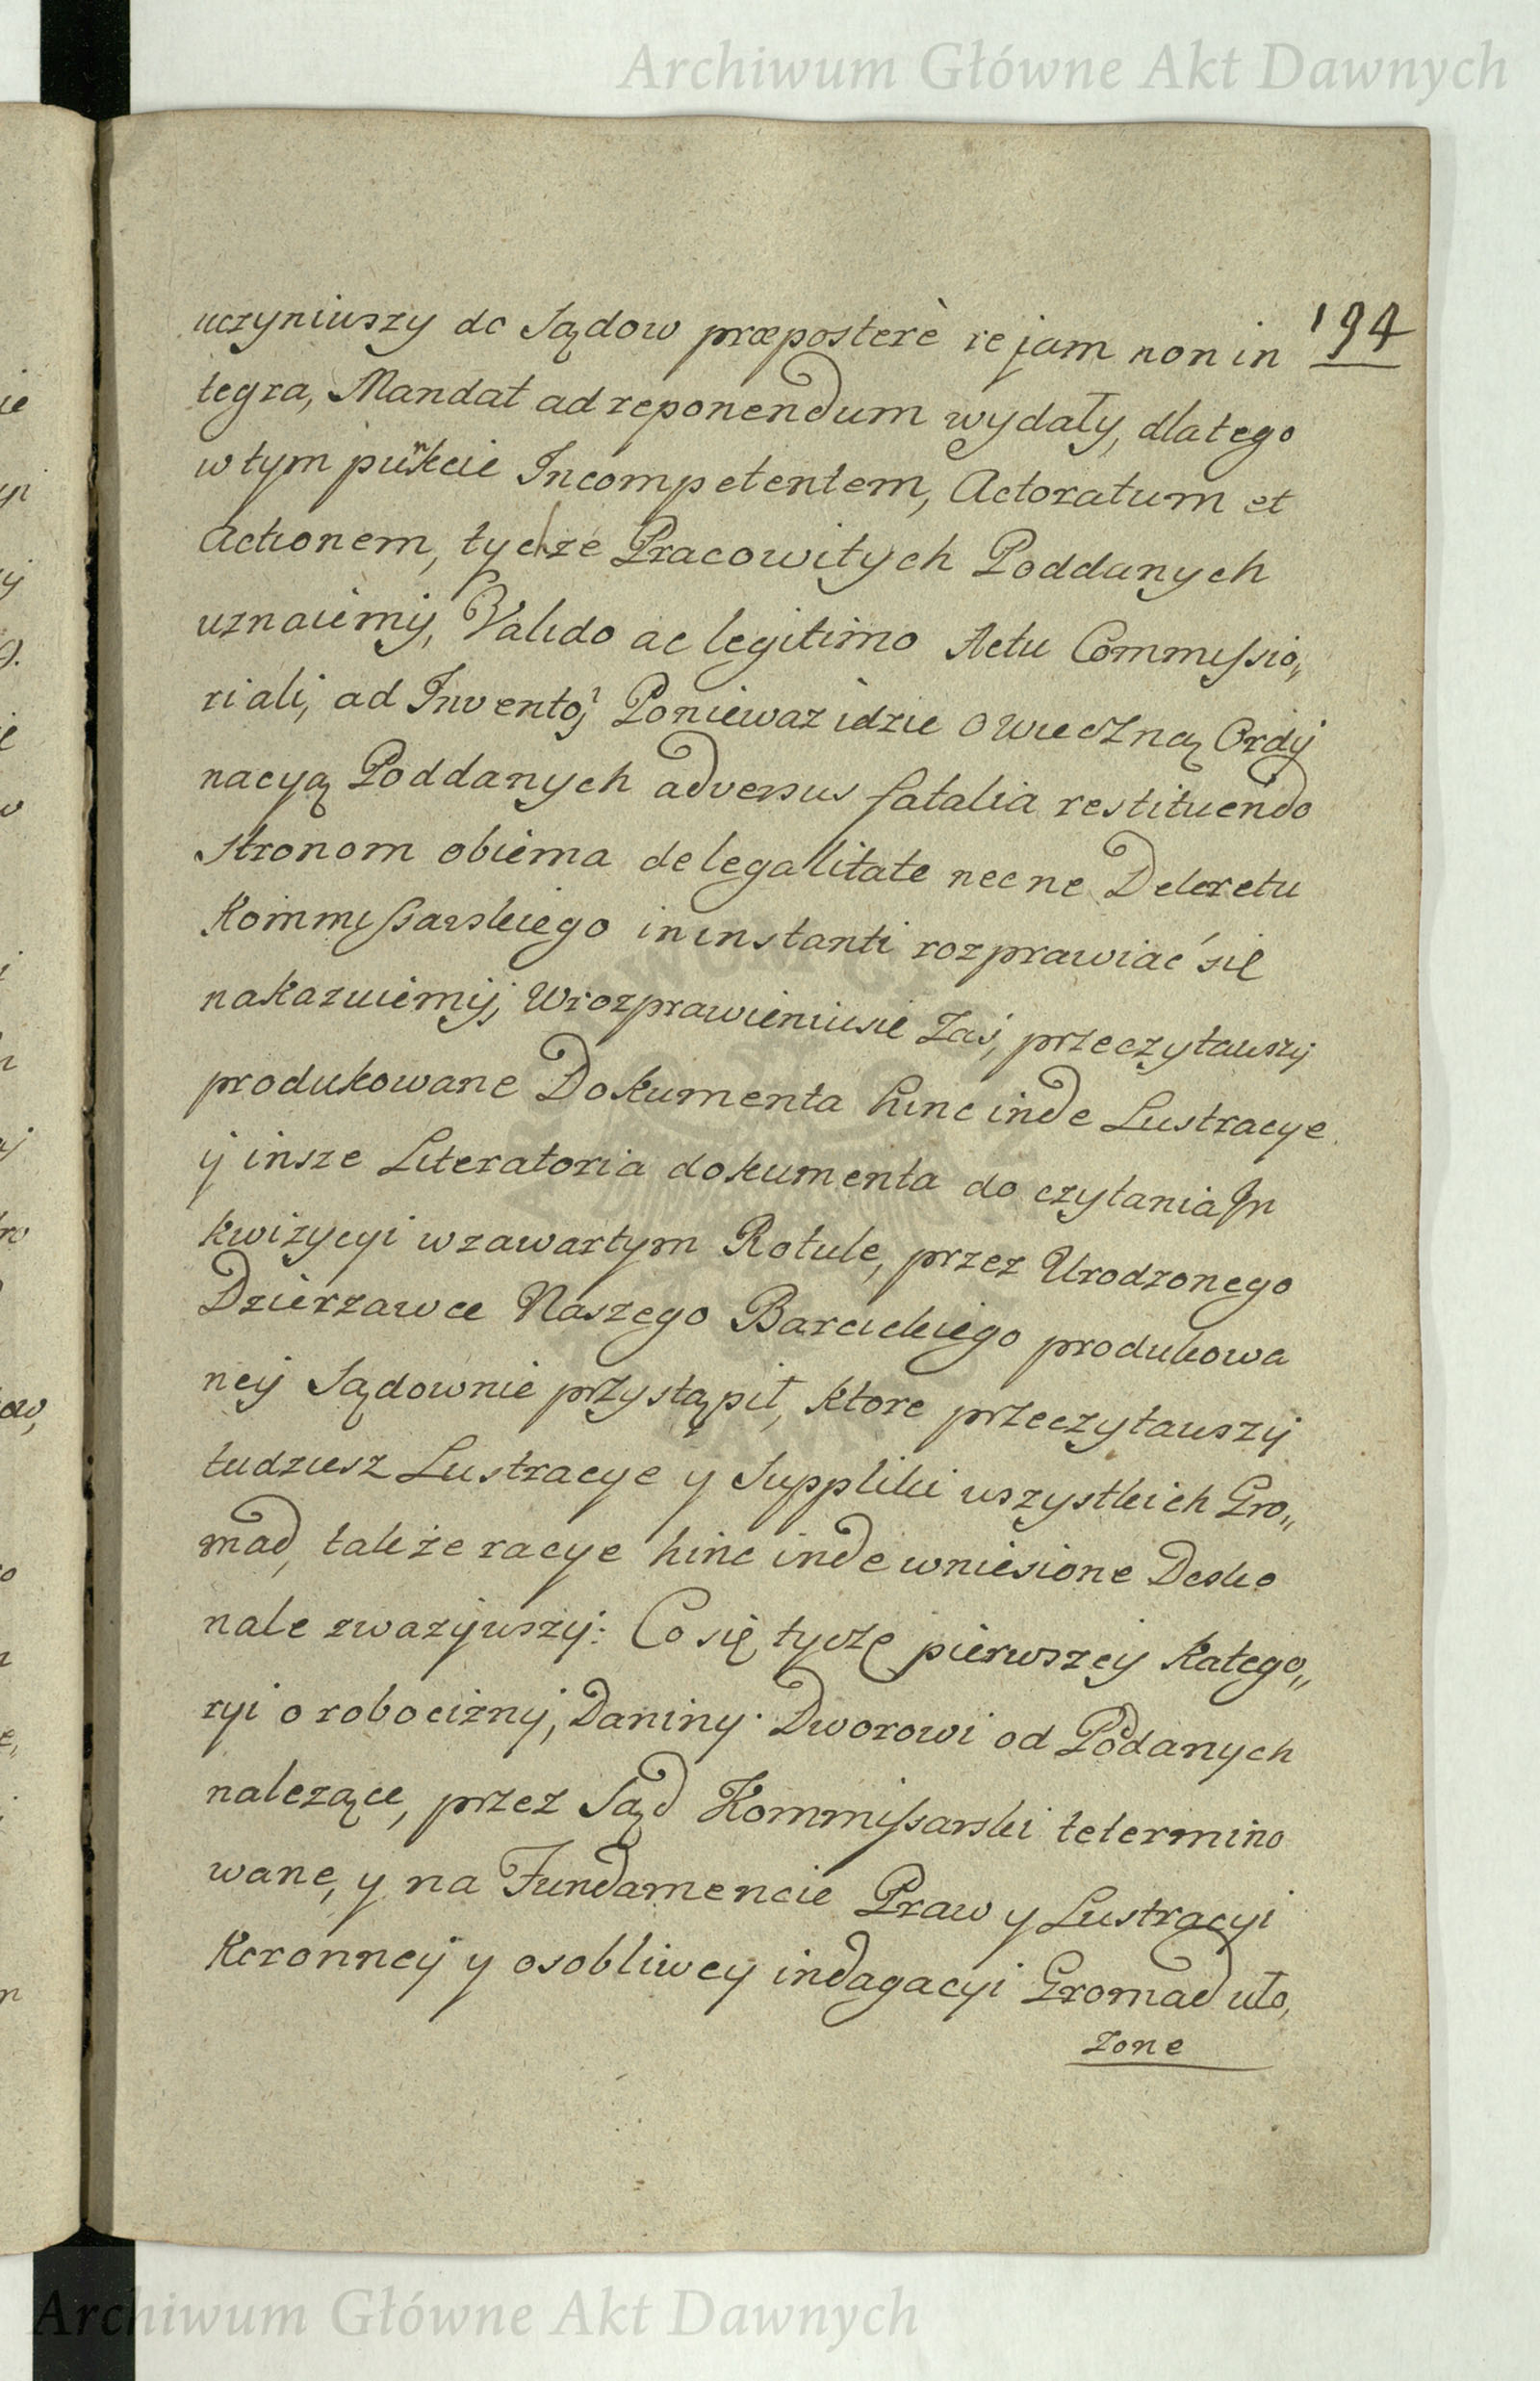 Archiwum Główne Akt Dawnych
194
uczyniwszy do Sądow præposterè re jam non in
tegra, Mandat ad reponendum wydały, dlatego
w tym punkcie Incompetentem, Actoratum et
Actionem, tychże Pracowitych Poddanych
uznaiemy, Valido ac legitimo Actu Commissio„
riali, ad Invento, Ponieważ idzie o wieczną Ordy
nacyą Poddanych adversus fatalia restituendo
Stronom obiema de legalitate necne Dekretu
Kommissarskiego in instanti rozprawiać się
nakazuiemy, W rozprawieniu się Zaś, przeczytawszy
produkowane Dokumenta hinc inde Lustracye
y insze Literatoria dokumenta do czytania In
kwizycyi w zawartym Rotule, przez Urodzonego
Dzierzawce Naszego Barcickiego produkowa
ney Sądownie przystąpił, ktore przeczytawszy
tudziesz Lustracye y Suppliki wszystkich Gro„
mad, także racye hinc inde wniesione Dosko
nale zwazywszy: Co się tycze pierwszey Katego„
ryi o robocizny, Daniny Dworowi od Podanych
nalezące, przez Sąd Kommissarski determino
wane, y na Fundamencie Praw y Lustracyi
Koronney y osobliwey indagacyi Gromad uło„
zone
Archiwum Główne Akt Dawnych